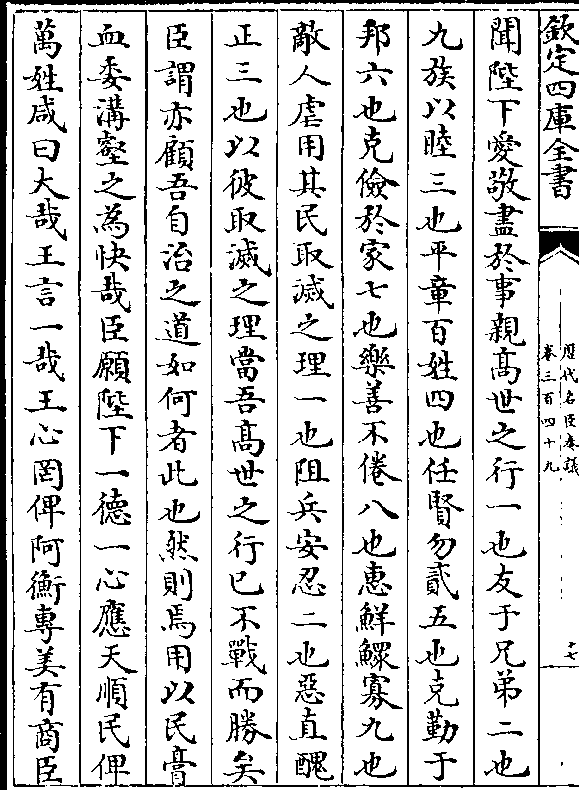 欽定四庫全書
歷代名臣奏議
卷三百四十九
十七
聞陛下愛敬盡於事親高世之行一也友于兄弟二也
九族以睦三也平章百姓四也任賢勿貳五也克勤于
邦六也克儉於家七也樂善不倦八也惠鮮鰥寡九也
敵人虐用其民取滅之理一也阻兵安忍二也惡直醜
正三也以彼取滅之理當吾高世之行已不戰而勝矣
臣謂亦顧吾自治之道如何者此也然則焉用以民膏
血委溝壑之為快哉臣願陛下一德一心應天順民俾
萬姓咸曰大哉王言一哉王心罔俾阿衡專美有商臣